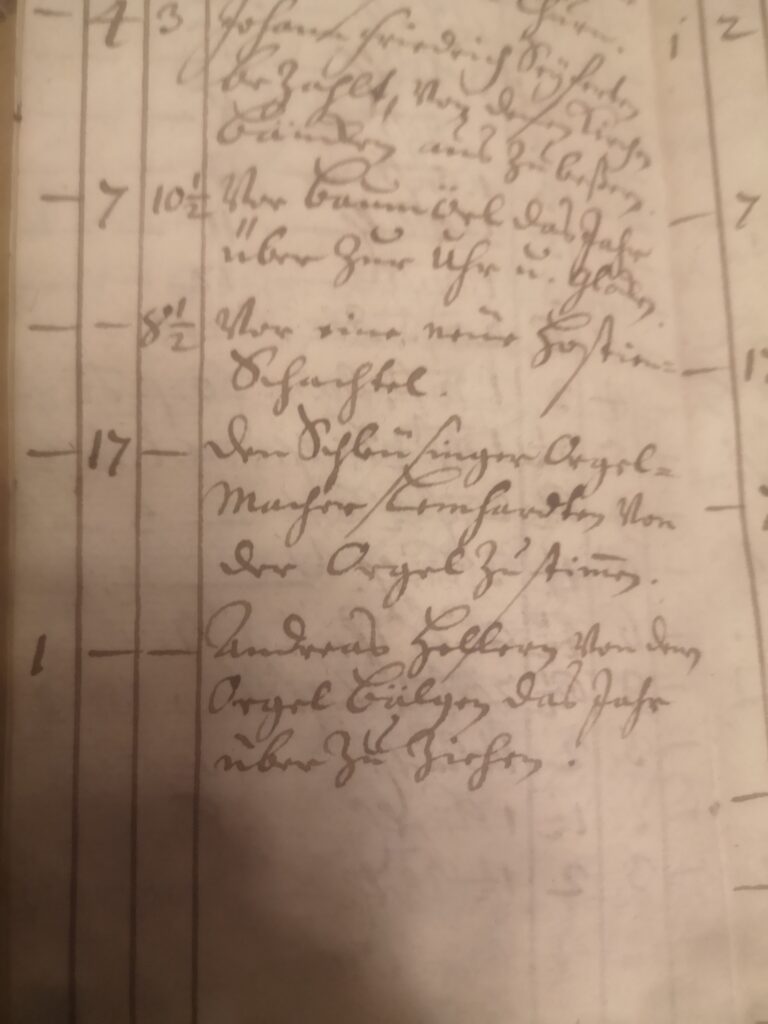 Thurn.
– 4 3 Johann Friedrich Seyferten
bezahlt, von denen Kirchen
Bäncken aus zu beßern.
– 7 10½ Vor Baumöel das Jahr
über zur Uhr u. Glocken.
– – 8½ Vor eine neüe Hostien=
Schachtel.
– 17 – Den Schleüsinger Orgel=
Macher Lemhardten von
der Orgel zu stim̄en.
1 – – Andreas Hellern von dem
Orgel Bälgen das Jahr
über zu Ziehen.
1 2
– 7